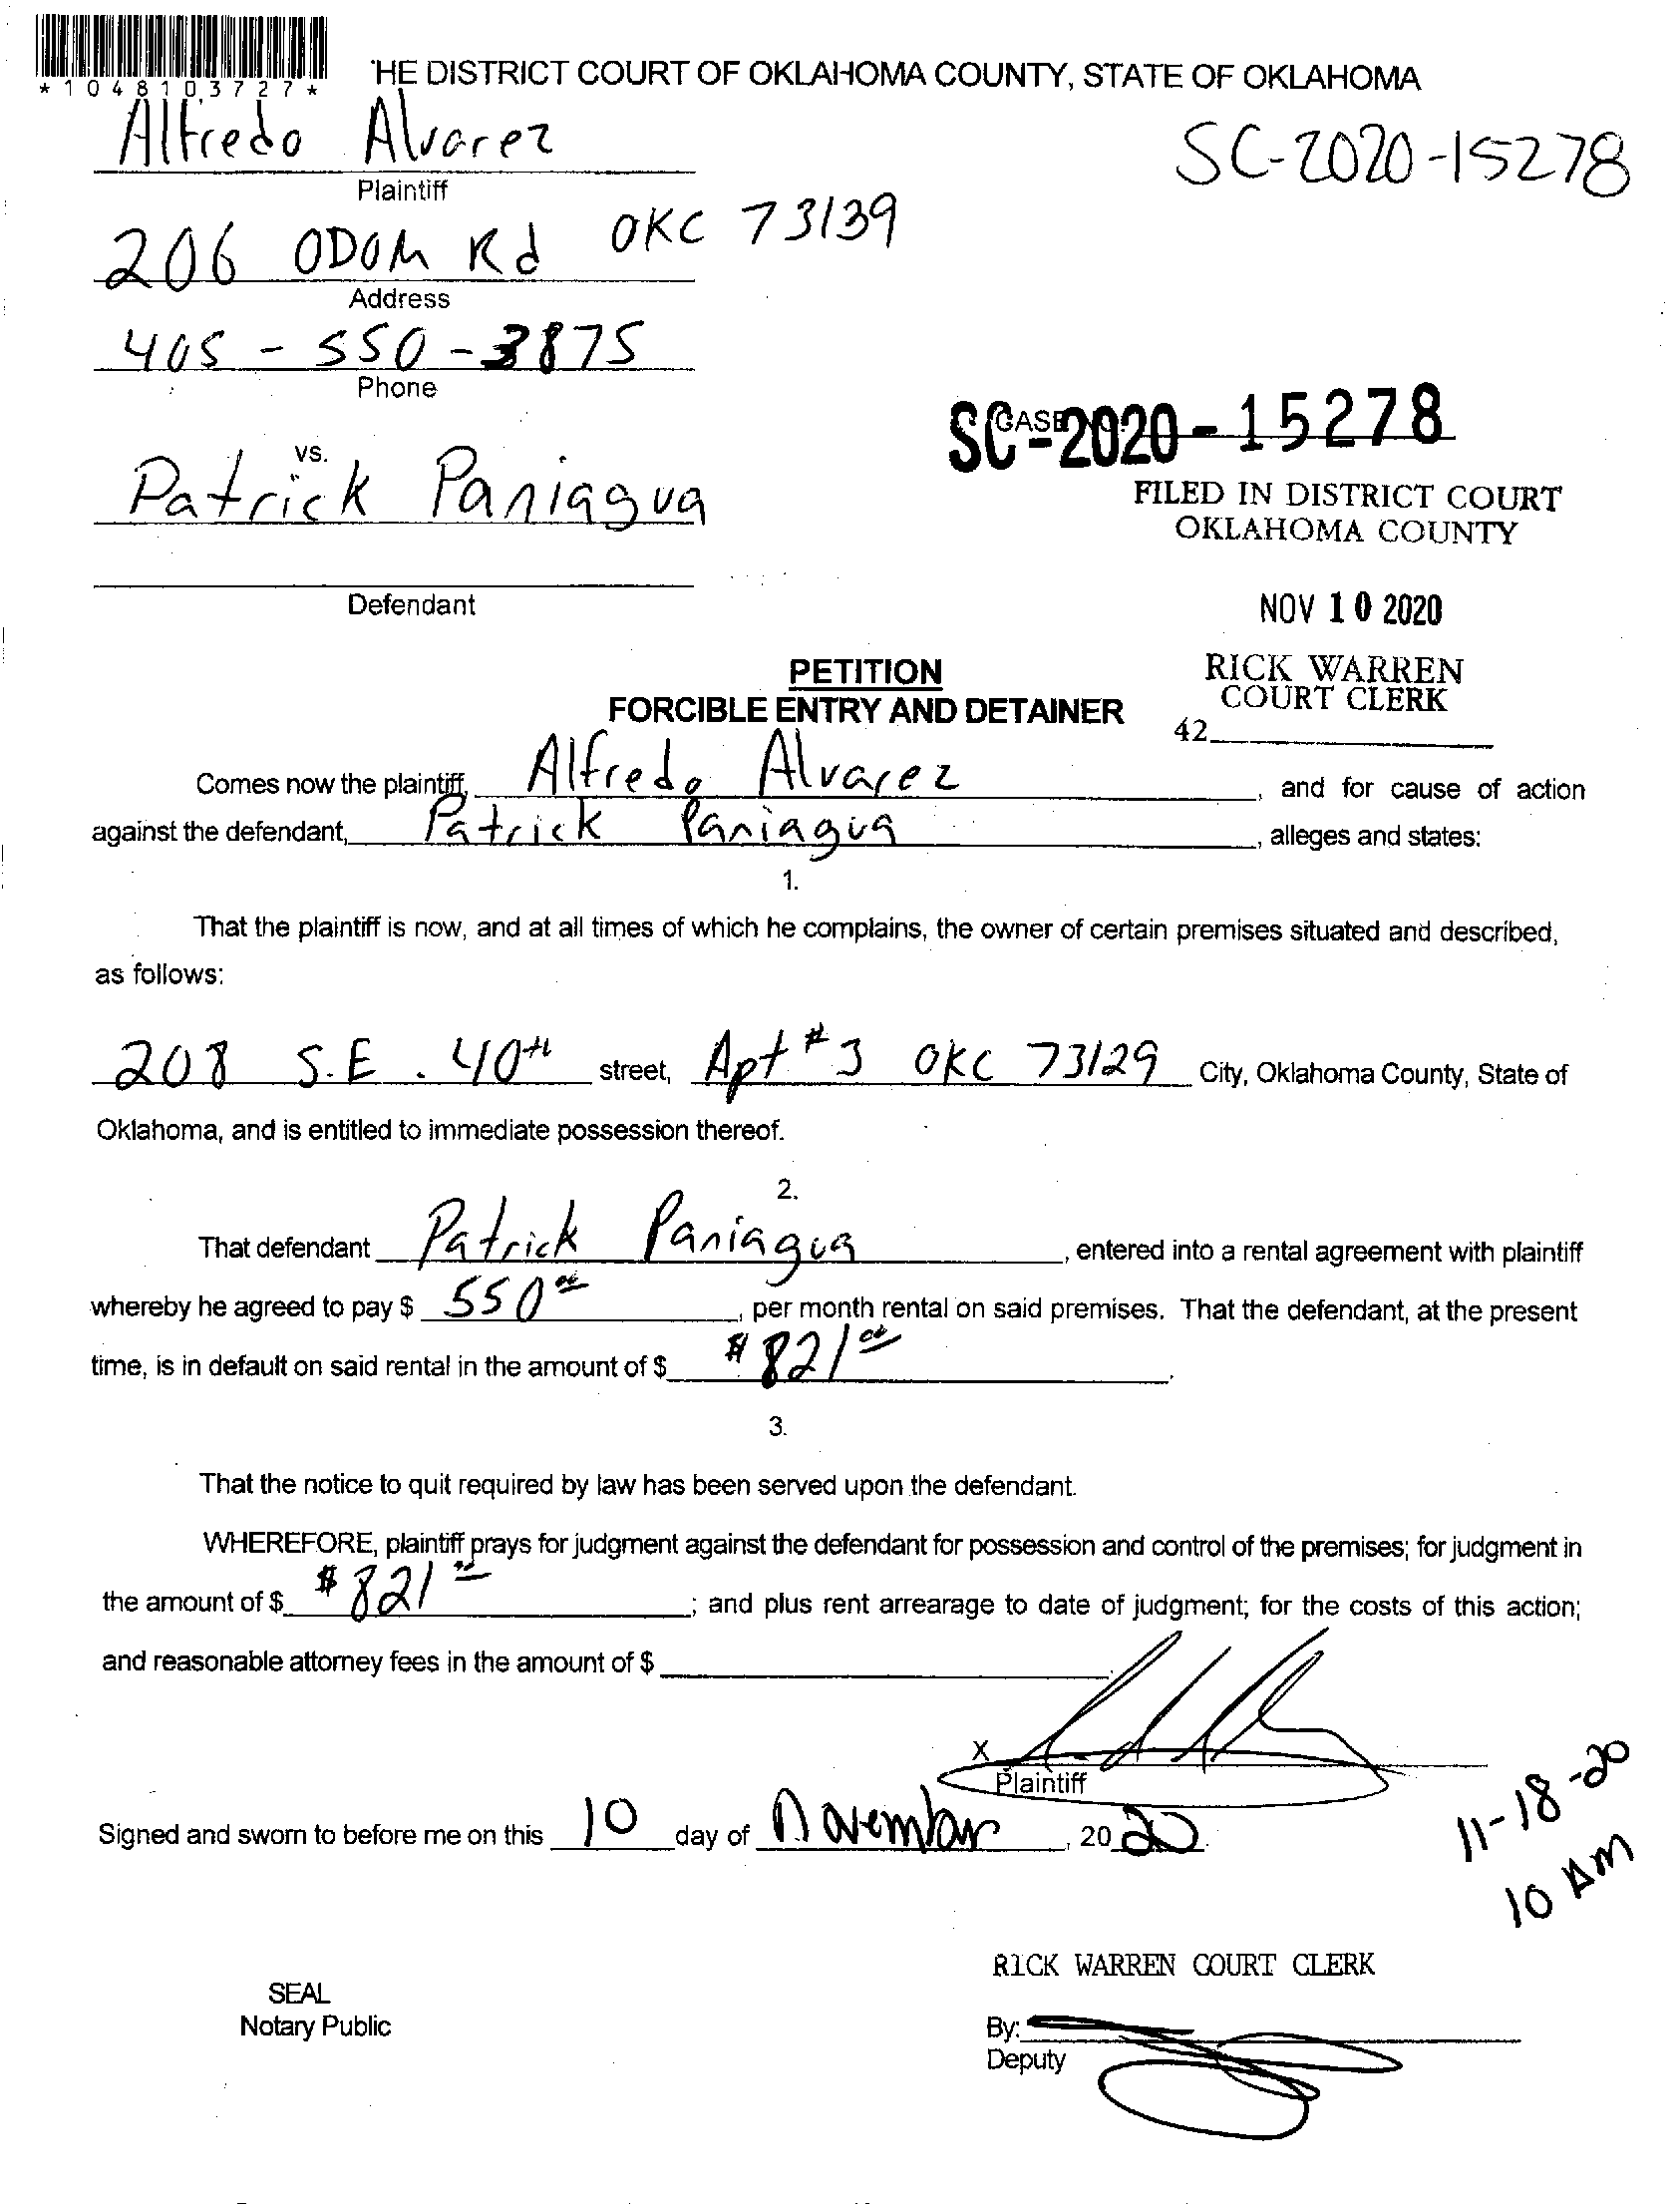 *1048103727*
HE DISTRICT COURT OF OKLAHOMA COUNTY, STATE OF OKLAHOMA
Alfredo Alvarez
SC-2020-15278
Plaintiff
206 ODOM Rd OKC 73139
Address
405-550-3875
Phone
SC-2020-15278
CASE
vs.
Patrick Paniagua
FILED IN DISTRICT COURT
OKLAHOMA COUNTY
Defendant
NOV 10 2020
PETITION
RICK WARREN
COURT CLERK
FORCIBLE ENTRY AND DETAINER
42
Comes now the plaintiff, Alfredo Alvarez, and for cause of action
against the defendant, Patrick Paniagua, alleges and states:
1.
That the plaintiff is now, and at all times of which he complains, the owner of certain premises situated and described,
as follows:
208 S.E. 40th street, Apt #3 OKC 73129 City, Oklahoma County, State of
Oklahoma, and is entitled to immediate possession thereof.
2.
That defendant Patrick Paniagua, entered into a rental agreement with plaintiff
whereby he agreed to pay $ 550.00, per month rental on said premises. That the defendant, at the present
time, is in default on said rental in the amount of $ $821.00.
3.
That the notice to quit required by law has been served upon the defendant.
WHEREFORE, plaintiff prays for judgment against the defendant for possession and control of the premises; for judgment in
the amount of $ $821.00; and plus rent arrearage to date of judgment; for the costs of this action;
and reasonable attorney fees in the amount of $
X
Plaintiff
Signed and sworn to before me on this 10 day of November, 2020.
11-18-20
10 AM
RICK WARREN COURT CLERK
SEAL
Notary Public
By:
Deputy